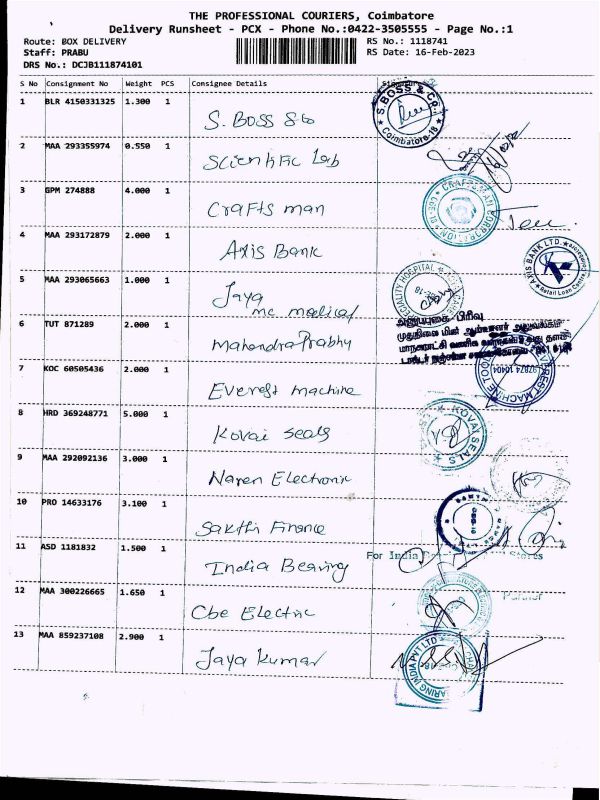 THE PROFESSIONAL COURIERS, Coimbatore
Delivery Runsheet - PCX - Phone No.:0422-3505555 - Page No.:1
Route: BOX DELIVERY
RS No.: 1118741
Staff: PRABU
RS Date: 16-Feb-2023
DRS No.: DCJB111874101
S No Consignment No Weight PCS Consignee Details
1 BLR 4150331325 1.300 1
S. BOSS & Co
S. BOSS & CO.
Coimbatore-18
2 MAA 293355974 0.550 1
Scientific Lab
3 GPM 274888 4.000 1
Crafts man
4 MAA 293172879 2.000 1
Axis Bank
AXIS BANK LTD.
Retail Loan Centre
5 MAA 293065663 1.000 1
Jaya
mc medical
6 TUT 871289 2.000 1
Mahendra Prabhy
அனுப்புகை பிரிவு
7 KOC 60505436 2.000 1
Everest machine
EREST MACHINE TOOL
97874 10404
8 HRD 369248771 5.000 1
Kovai Seals
KOVAI SEALS
9 MAA 292092136 3.000 1
Naren Electronic
10 PRO 14633176 3.100 1
Sakthi Finance
11 ASD 1181832 1.500 1
India Bearing
For India
Stores
12 MAA 300226665 1.650 1
Cbe Electric
13 MAA 859237108 2.900 1
Jaya Kumar
ARING INDIA PVT LTD